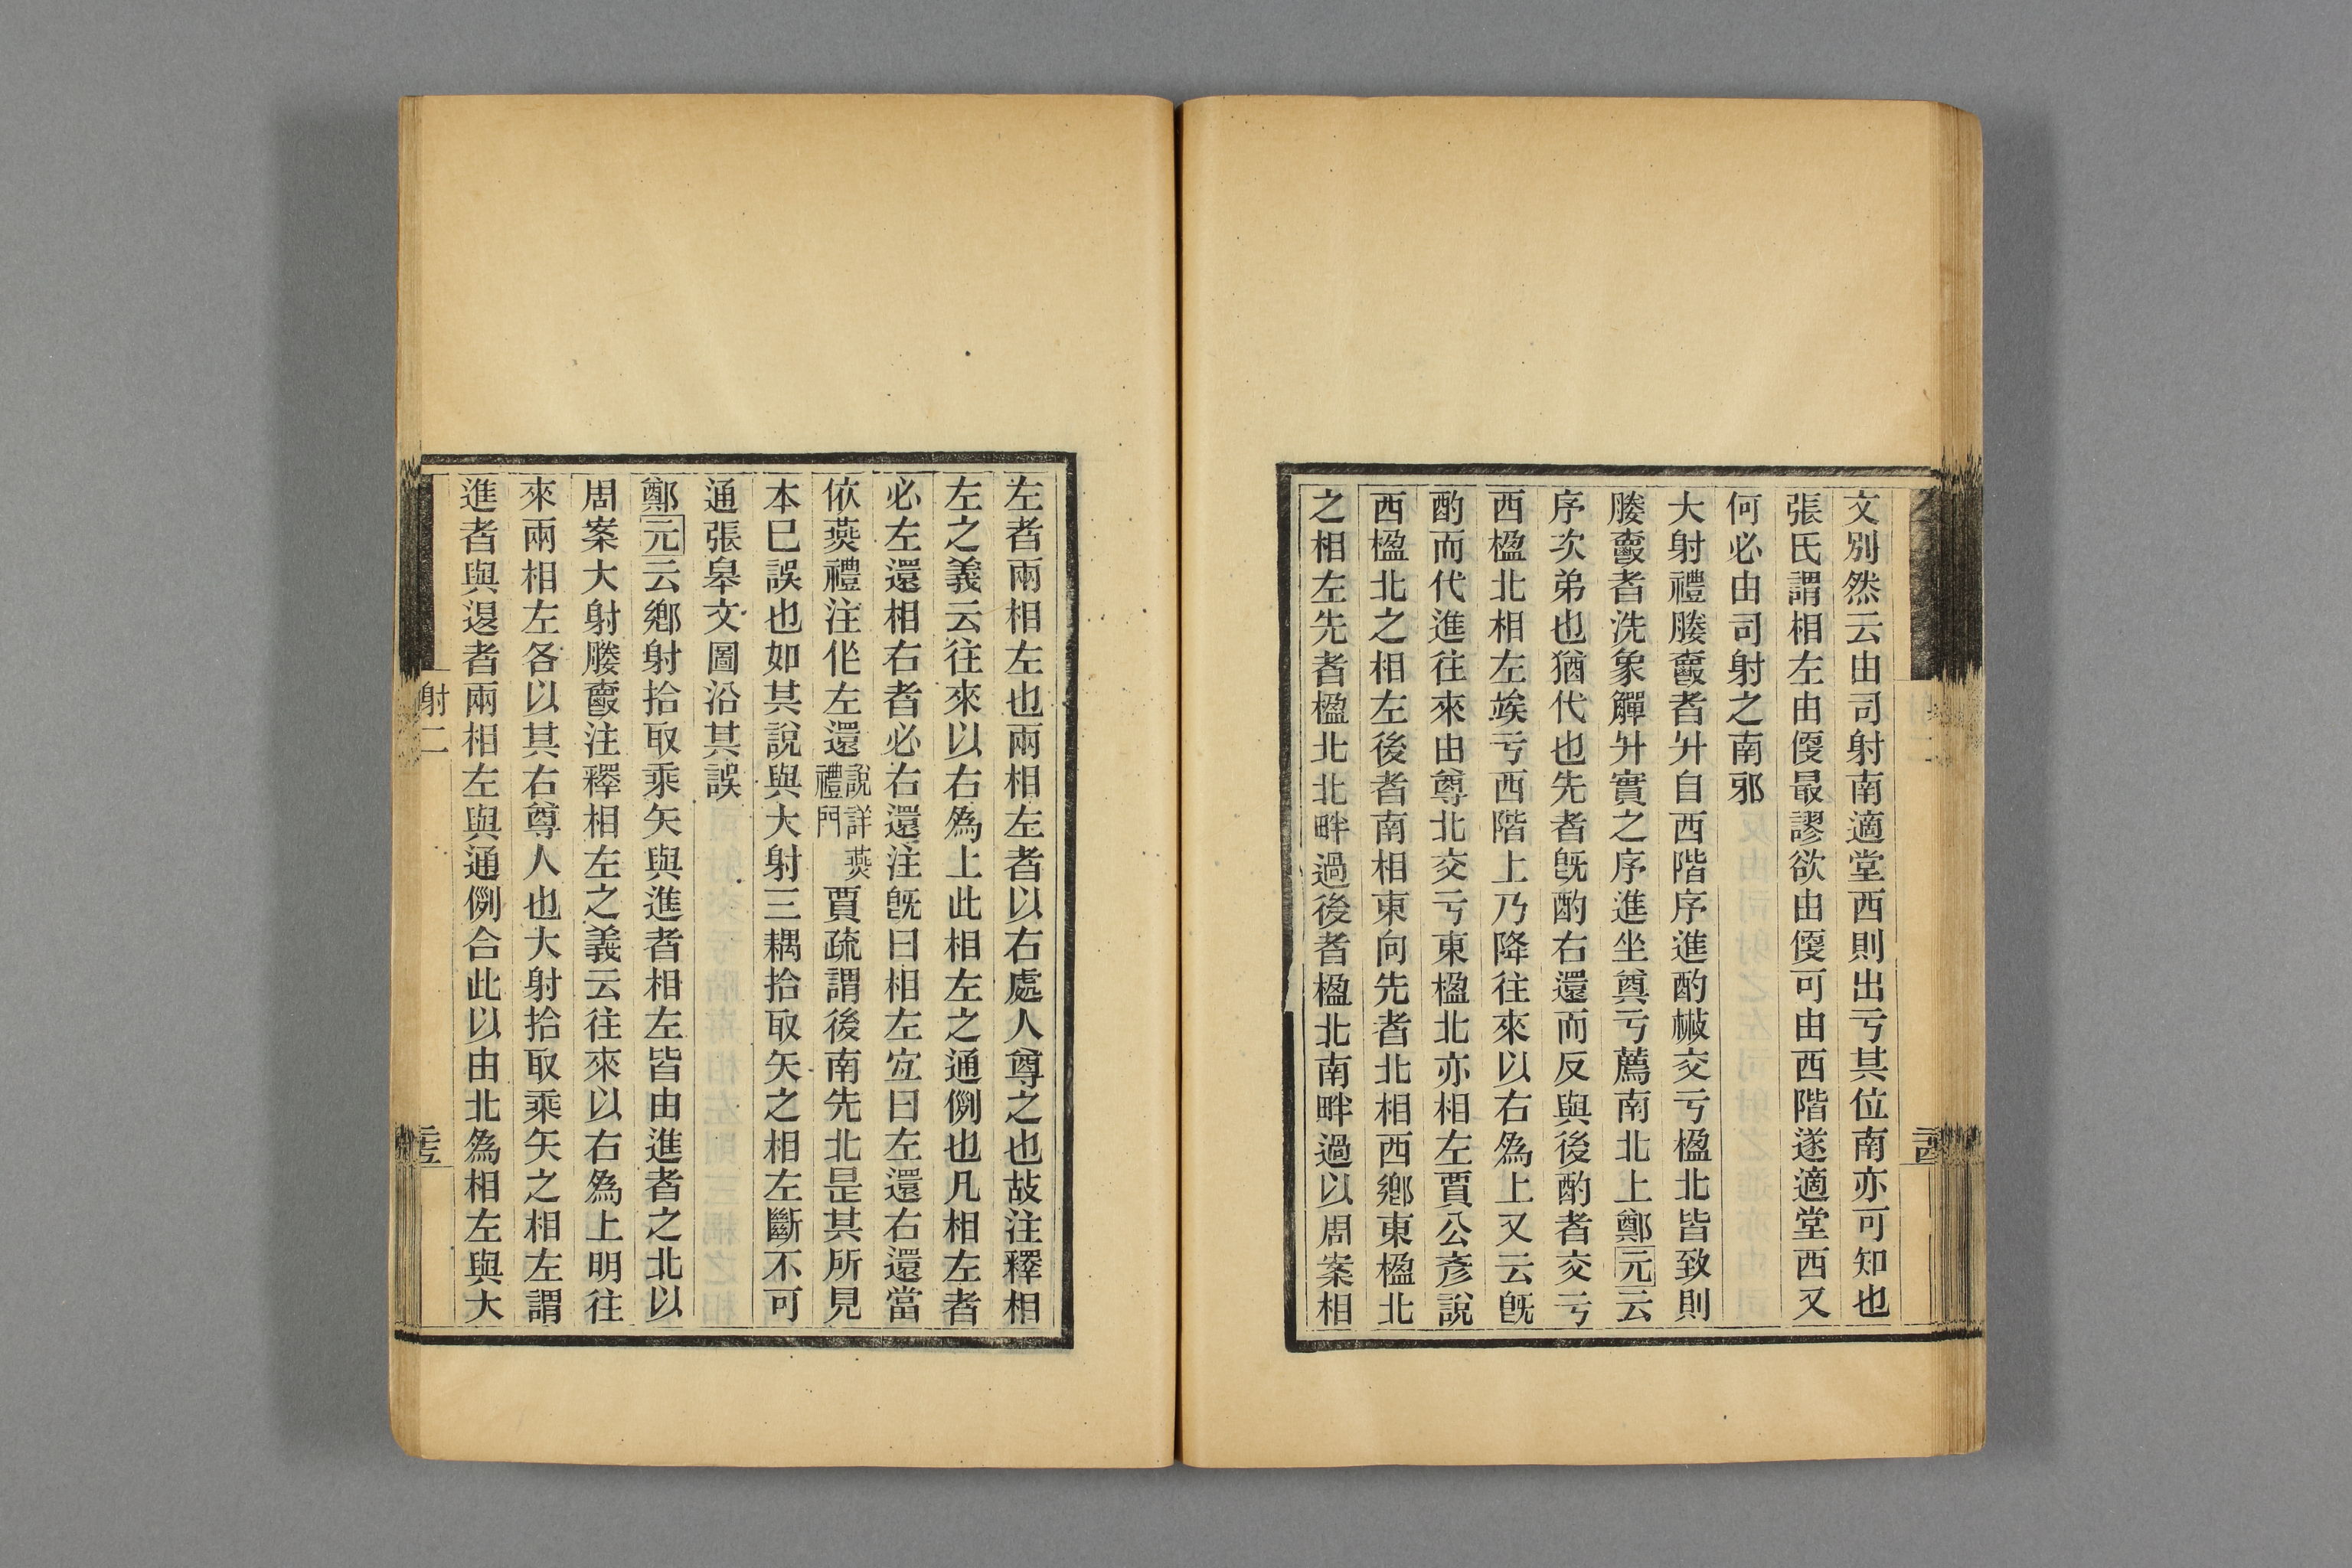 文別然云由司射南適堂西則出亏其位南亦可知也
張氏謂相左由偃最謬欲由偃可由西階遂適堂西又
何必由司射之南邪
大射禮媵𧶠者升自西階序進酌㪚交亏楹北皆致則
媵𧶠者洗象觶升實之序進坐奠亏薦南北上鄭元云
序次弟也猶代也先者旣酌右還而反與後酌者交亏
西楹北相左竢亏西階上乃降往來以右爲上又云旣
酌而代進往來由尊北交亏東楹北亦相左賈公彥說
西楹北之相左後者南相東向先者北相西鄉東楹北
之相左先者楹北北畔過後者楹北南畔過以周案相
二十四
左者兩相左也兩相左者以右處人尊之也故注釋相
左之義云往來以右爲上此相左之通例也凡相左者
必左還相右者必右還注旣曰相左宐曰左還右還當
依燕禮注作左還說詳燕禮門賈疏謂後南先北是其所見
本已誤也如其說與大射三耦拾取矢之相左斷不可
通張皋文圖沿其誤
鄭元云鄉射拾取乘矢與進者相左皆由進者之北以
周案大射媵𧶠注釋相左之義云往來以右爲上明往
來兩相左各以其右尊人也大射拾取乘矢之相左謂
進者與退者兩相左與通例合此以由北爲相左與大
射二
二十五